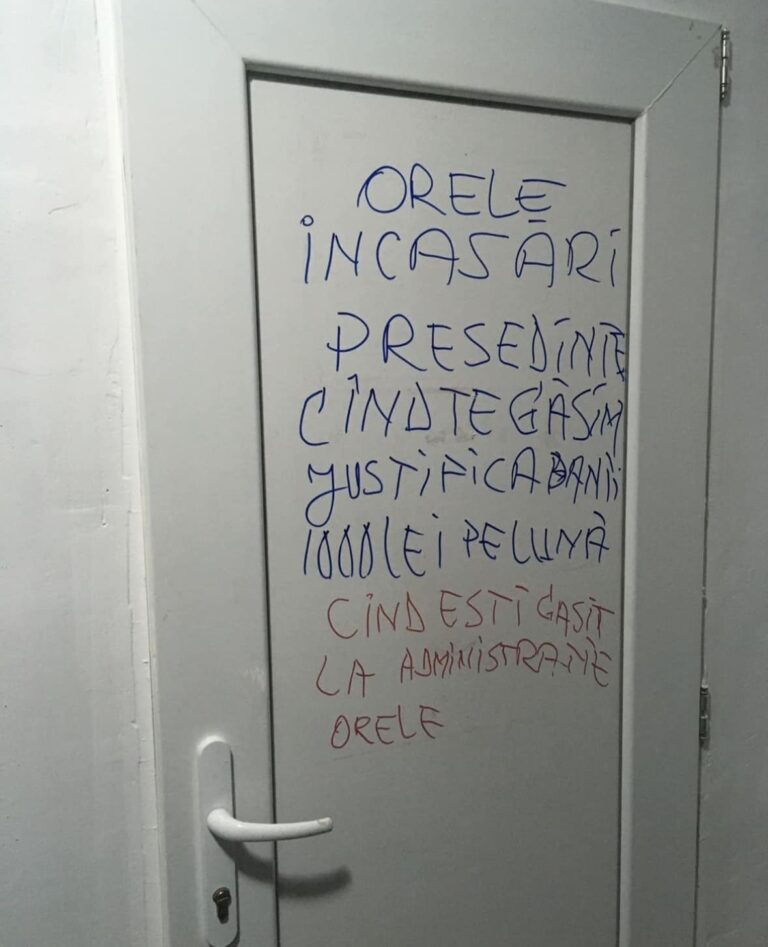 ORELE
ÎNCASĂRI
PRESEDINTE
CÎND TE GĂSIM
JUSTIFICA BANII
1000 LEI PE LUNĂ
CÎND ESTI GASIT
LA ADMINISTRATIE
ORELE